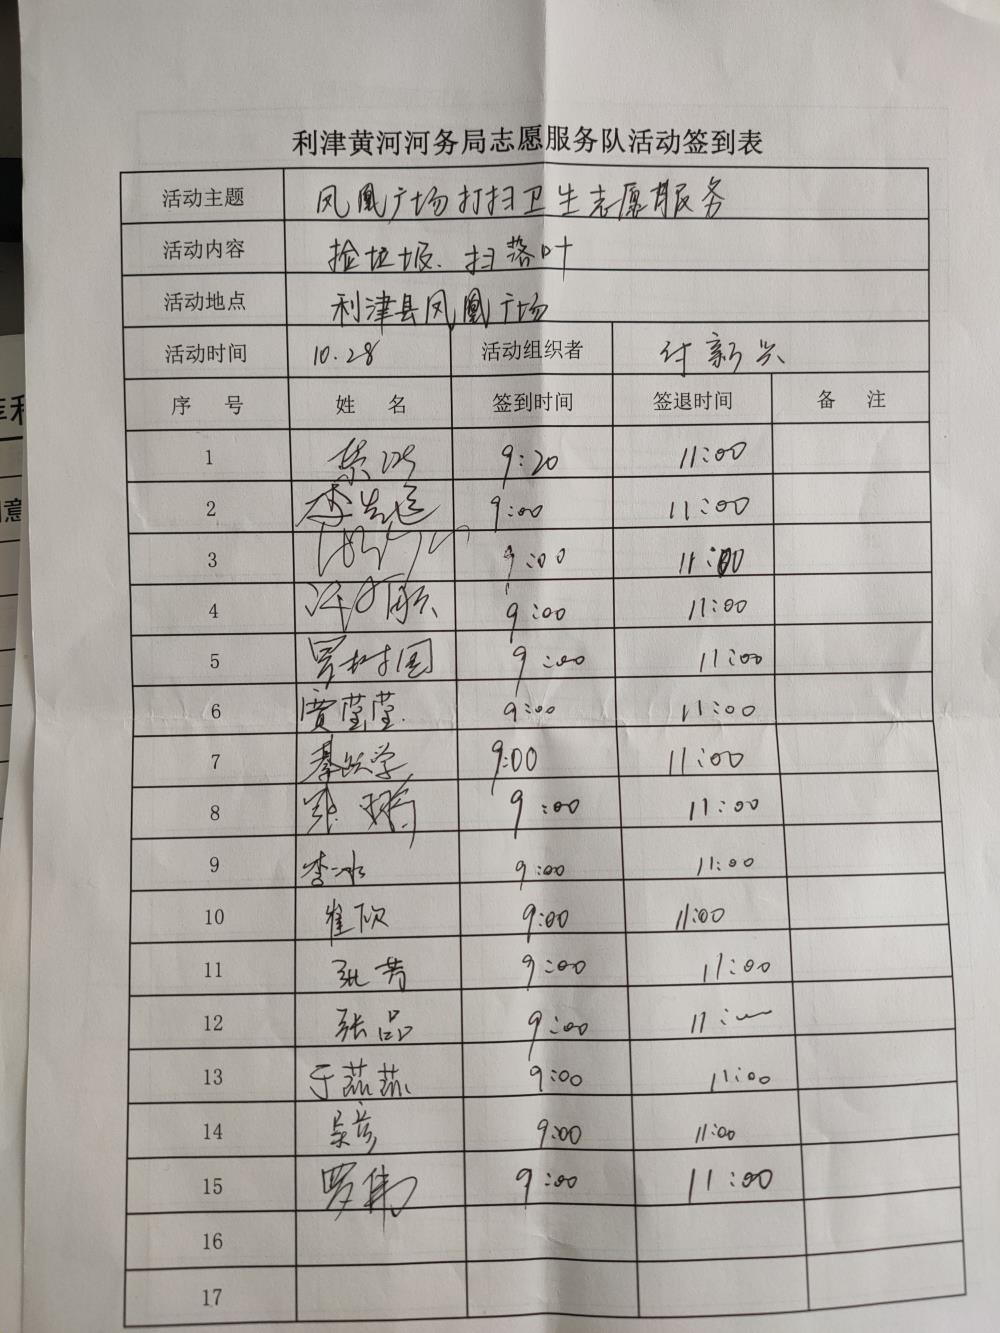 利津黄河河务局志愿服务队活动签到表
活动主题 凤凰广场打扫卫生志愿服务
活动内容 捡垃圾、扫落叶
活动地点 利津县凤凰广场
活动时间 10.28 活动组织者 付新兴
序 号 姓 名 签到时间 签退时间 备 注
1 9:20 11:00
2 李先延 9:00 11:00
3 9:00 11:00
4 9:00 11:00
5 罗树国 9:00 11:00
6 贾莹莹 9:00 11:00
7 綦跃学 9:00 11:00
8 9:00 11:00
9 李冰 9:00 11:00
10 崔欣 9:00 11:00
11 张芳 9:00 11:00
12 张品 9:00 11:
13 于蕊蕊 9:00 11:00
14 吴彦 9:00 11:00
15 罗伟 9:00 11:00
16
17